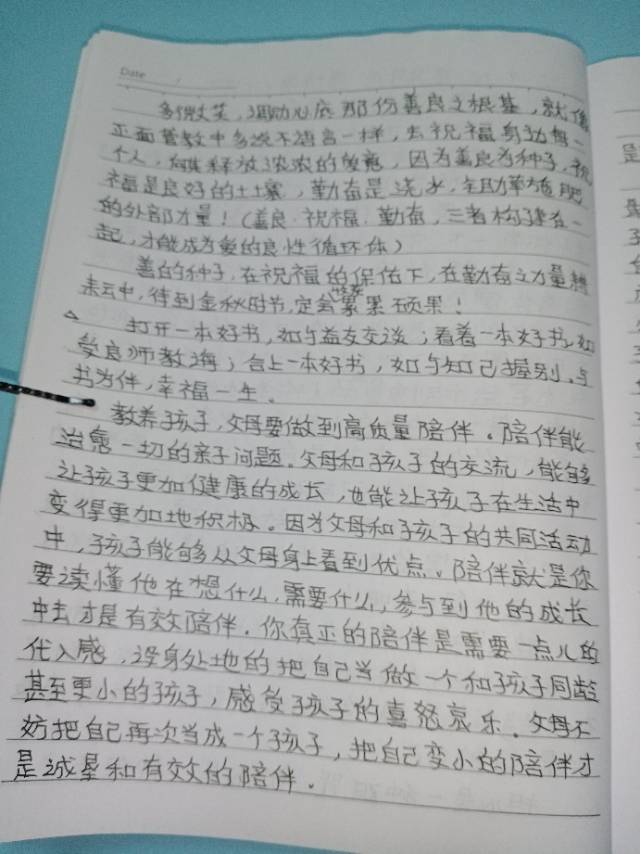 Date
多微笑,调动心底那份善良之根基,就像
正面管教中多说不语言一样,去祝福身边每一
个人,向其释放浓浓的爱意,因为善良为种子,祝
福是良好的土壤,勤奋是浇水,辅助草施肥
的外部力量!(善良、祝福、勤奋,三者构建在一
起,才能成为爱的良性循环体)
善的种子,在祝福的保佑下,在勤奋之力量
中,待到金秋时节,定会累累硕果!
打开一本好书,如与益友交谈;看着一本好书,如
受良师教诲;合上一本好书,如与知己握别。与
书为伴,幸福一生。
教养孩子,父母要做到高质量陪伴。陪伴能
治愈一切的亲子问题。父母和孩子的交流,能够
让孩子更加健康的成长,也能让孩子在生活中
变得更加地积极。因为父母和孩子的共同活动
中,孩子能够从父母身上看到优点。陪伴就是你
要读懂他在想什么,需要什么,参与到他的成长
中去才是有效陪伴。你真正的陪伴是需要一点儿的
代入感,设身处地的把自己当做一个和孩子同龄
甚至更小的孩子,感受孩子的喜怒哀乐。父母不
妨把自己再次当成一个孩子,把自己变小的陪伴才
是诚恳和有效的陪伴。